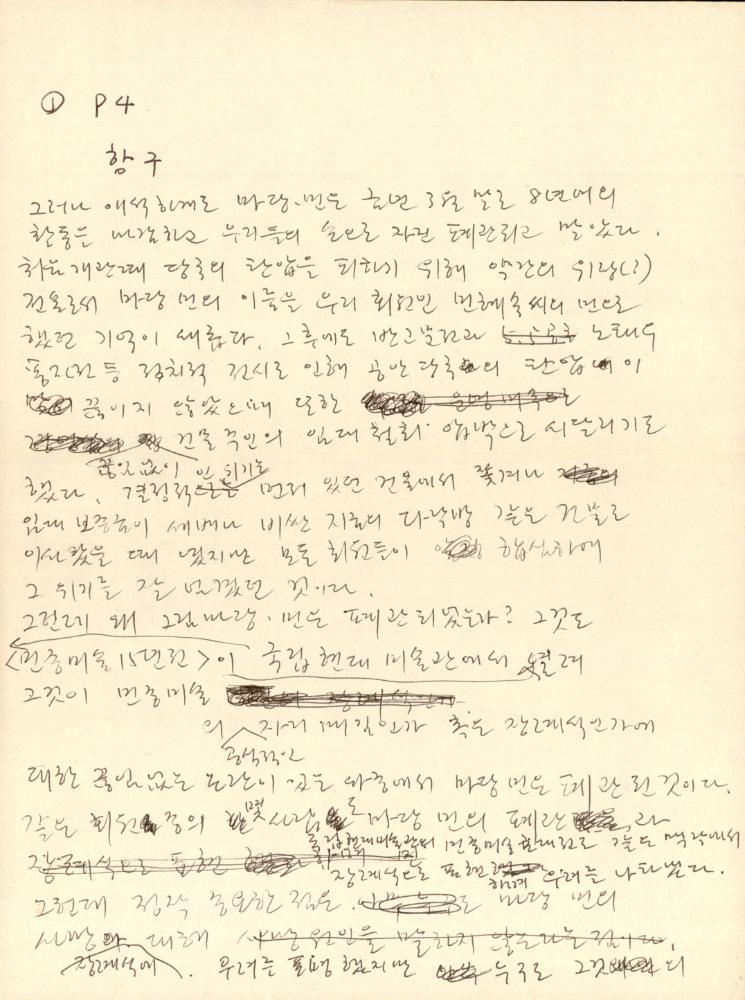 ① P4
함구
그러나 애석하게도 마당·민은 금년 3월 말로 8년여의
활동을 마감하고 우리들의 손으로 자진 폐관되고 말았다.
처음 개관때 당국의 탄압을 피하기 위해 약간의 위장(?)
전술로서 마당 민의 이름을 우리 회원인 민혜숙씨의 민으로
했던 기억이 새롭다. 그후에도 반고문전과 노태우
풍자전 등 정치적 전시로 인해 공안 당국의 탄압이
끊이지 않았는데 또한
건물주인의 임대 철회·압박으로 시달리기도
끊임없이 인 위기는
했다. 결정적 먼저 있던 건물에서 쫓겨나
임대 보증금이 세배나 비싼 지금의 다락방 같은 건물로
이사 왔을 때 였지만 모든 회원들이 합심하에
그 위기를 잘 넘겼던 것이다.
그런데 왜 그림마당·민은 폐관 되었는가? 그것도
<민중미술 15년전>이 국립현대 미술관에서 열려
그것이 민중미술
의 자리매김인가 혹은 장례식인가에
공식적인
대한 끊임없는 논란이 있는 와중에서 마당 민은 폐관 된 것이다.
같은 회원 중의 몇 사람도 마당 민의 폐관과
국립현대미술관의 민중미술 초대전로 같은 맥락에서
장례식으로 표현하며 우려를 나타냈다.
그런데 정작 중요한 점은 마당 민의
사망 대해
장례식에 우려를 표명 했지만 누구도 그것의